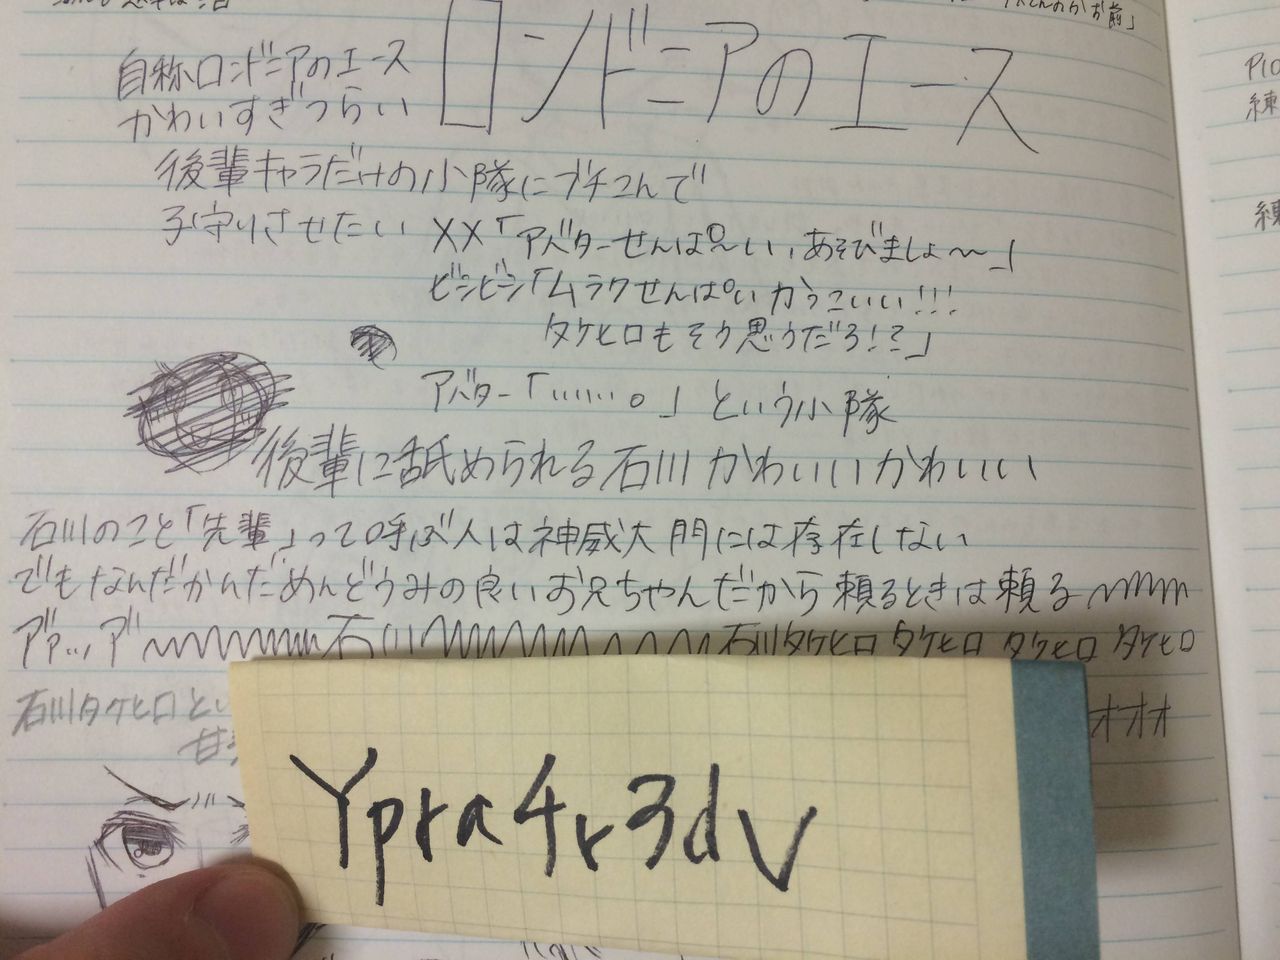 ロンドニアのエース
自称ロンドニアのエース
かわいすぎつらい
後輩キャラだけの小隊にブチこんで
子守りさせたい
××「アバターせんぱ〜い、あそびましょ〜」
ビシビシ「ムラクせんぱいかっこいい!!!
タケヒロもそう思うだろ!?」
アバター「……。」という小隊
後輩に舐められる石川かわいいかわいい
石川のこと「先輩」って呼ぶ人は神威大門には存在しない
でもなんだかんだめんどうみの良いお兄ちゃんだから頼るときは頼る
石川 石川タケヒロ タケヒロ タケヒロ タケヒロ
石川タケヒロとい
オオオ
Ypra4r3dv
練
練